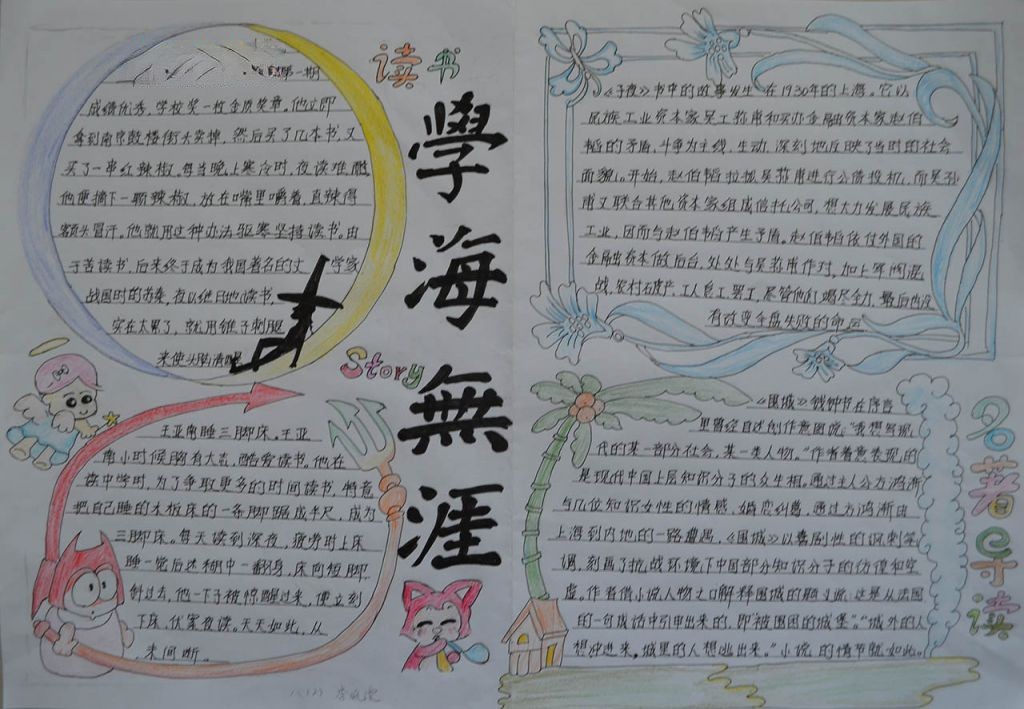 第一期
成绩优秀，学校奖一枚金质奖章。他立即
拿到南京鼓楼街头卖掉，然后买了几本书，又
买了一串红辣椒。每当晚上寒冷时，夜读难耐，
他便摘下一颗辣椒，放在嘴里嚼着，直辣得
额头冒汗。他就用这种办法驱寒坚持读书。由
于苦读书，后来终于成为我国著名的文 学家
战国时的苏秦，夜以继日地读书，
实在太累了，就用锥子刺腿
来使头脑清醒
读书
Story
學海無涯
王亚南睡三脚床。王亚
南小时候胸有大志，酷爱读书。他在
读中学时，为了争取更多的时间读书，特意
把自己睡的木板床的一条脚锯成半尺，成为
三脚床。每天读到深夜，疲劳时上床
睡一觉后迷糊中一翻身，床向短脚
斜过去，他一下子被惊醒过来，便立刻
下床，伏案夜读。天天如此，从
未间断。
《子夜》书中的故事发生在1930年的上海。它以
民族工业资本家吴荪甫和买办金融资本家赵伯
韬的矛盾、斗争为主线，生动、深刻地反映了当时的社会
面貌。开始，赵伯韬拉拢吴荪甫进行公债投机，而吴荪
甫又联合其他资本家组成信托公司，想大力发展民族
工业，因而与赵伯韬产生矛盾。赵伯韬依付外国的
金融资本做后台，处处与吴荪甫作对，加上军阀混
战，农村破产，工人怠工、罢工，尽管他们竭尽全力，最后也没
有改变全盘失败的命运
《围城》钱钟书在序言
里曾经自述创作意图说："我想写现
代的某一部分社会，某一类人物。"作者着意表现的
是现代中国上层知识分子的众生相。通过主人公方鸿渐
与几位知识女性的情感、婚恋纠葛，通过方鸿渐由
上海到内地的一路遭遇，《围城》以喜剧性的讽刺笔
调，刻画了抗战环境下中国部分知识分子的彷徨和空
虚。作者借小说人物之口解释围城的题义说：这是从法国
的一句成语中引申出来的，即"被围困的城堡"。"城外的人
想冲进来，城里的人想逃出来。"小说的情节就如此。
名著导读